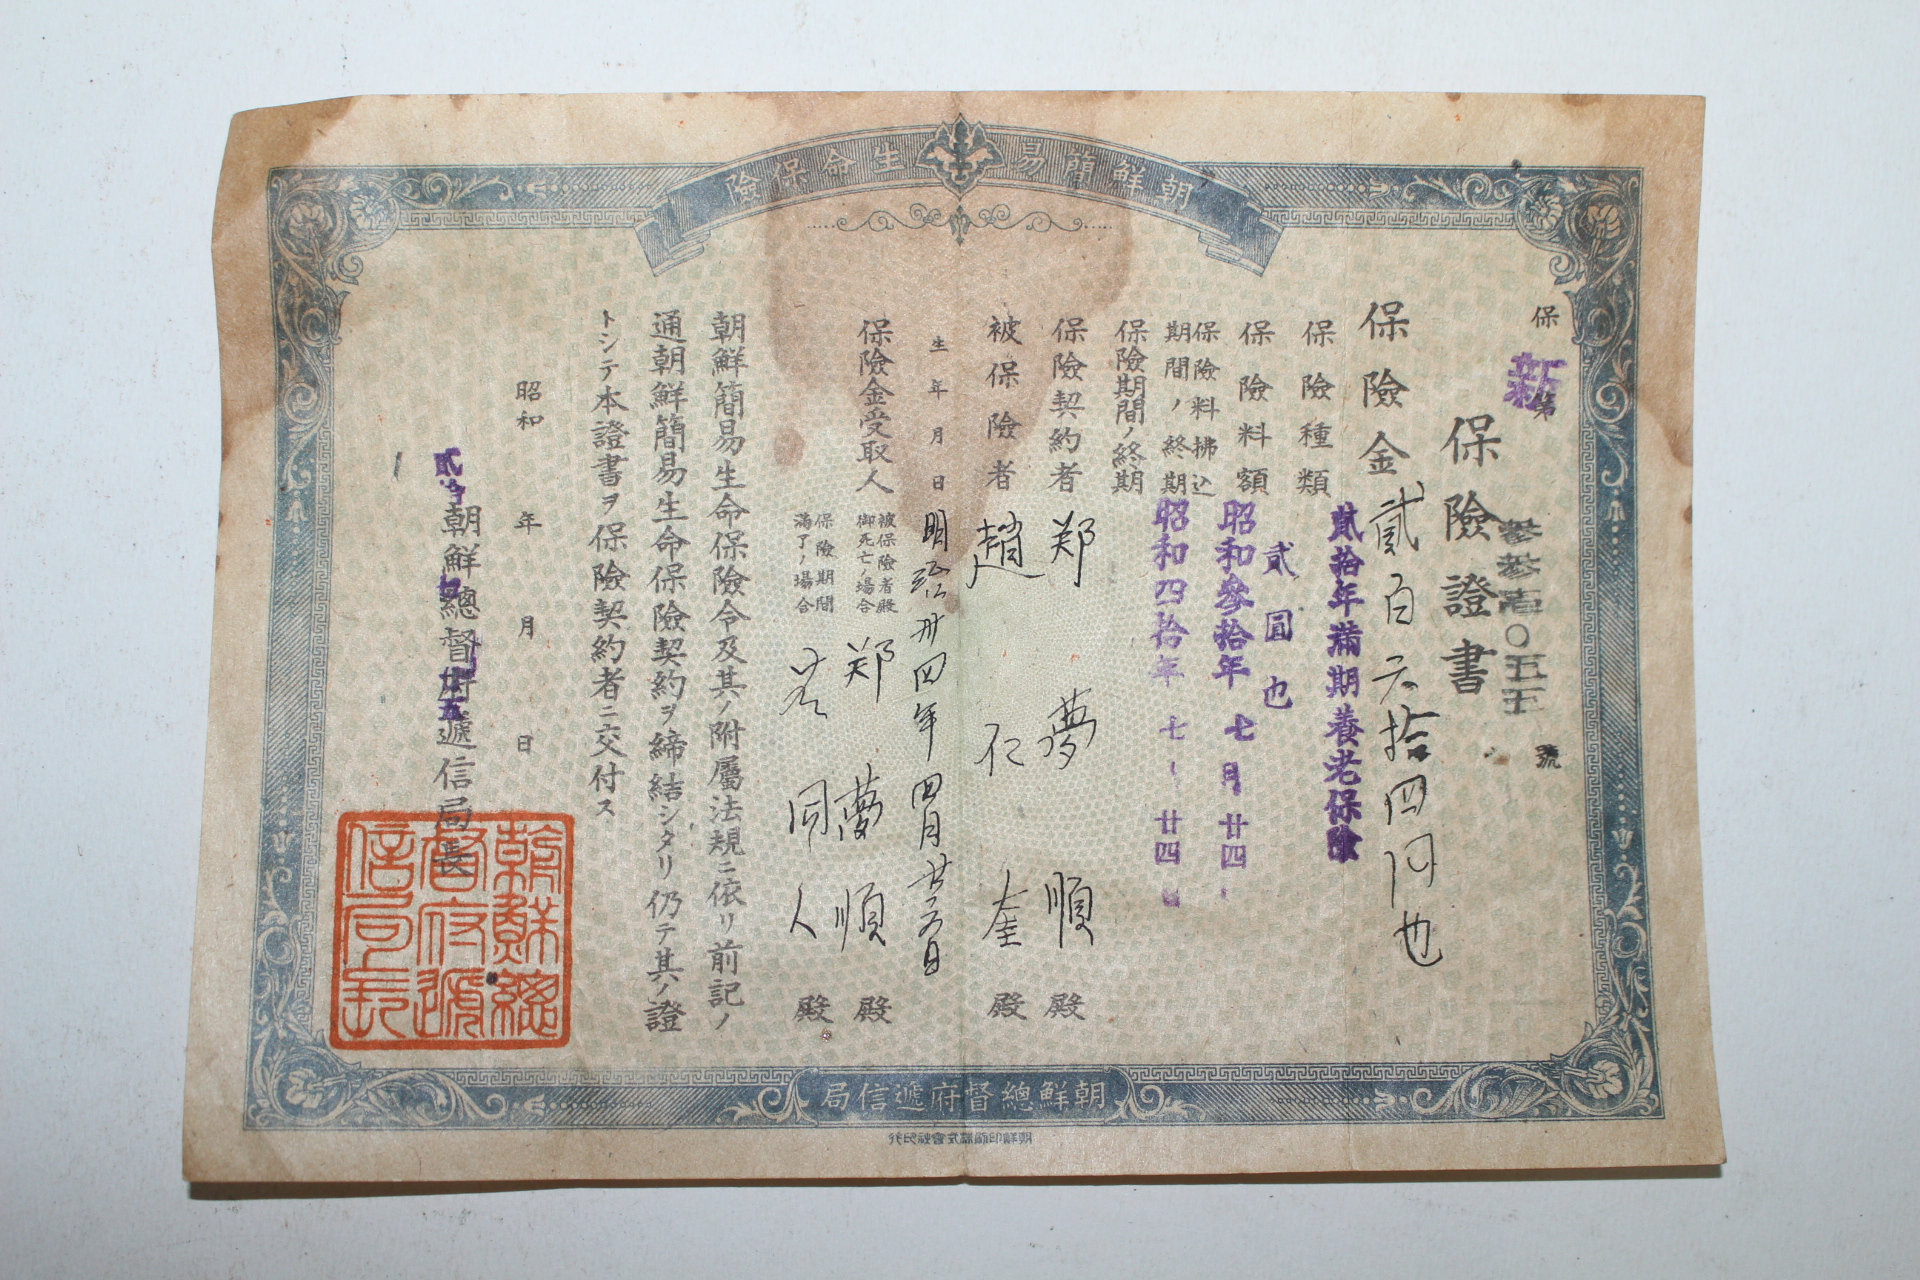 朝鮮簡易生命保險
保新第參參壱〇五五號
保險證書
保險金貳百六拾四円也
保險種類 貳拾年滿期養老保險
保險料額 貳圓也
保險料拂込期間ノ終期 昭和參拾年七月廿四
保險期間ノ終期 昭和四拾年七 廿四日
保險契約者 郑夢順殿
被保險者 趙仁奎殿
生年月日 明治卅四年四月廿六日
保險金受取人 被保險者殿御死亡ノ場合 郑夢順殿
保險期間滿了ノ場合 右同人殿
朝鮮簡易生命保險令及其ノ附屬法規ニ依リ前記ノ
通朝鮮簡易生命保險契約ヲ締結シタリ仍テ其ノ證
トシテ本證書ヲ保險契約者ニ交付ス
昭和 年 月 日
朝鮮總督府遞信局長
朝鮮總督府遞信局長
朝鮮總督府遞信局
朝鮮印刷株式會社印行